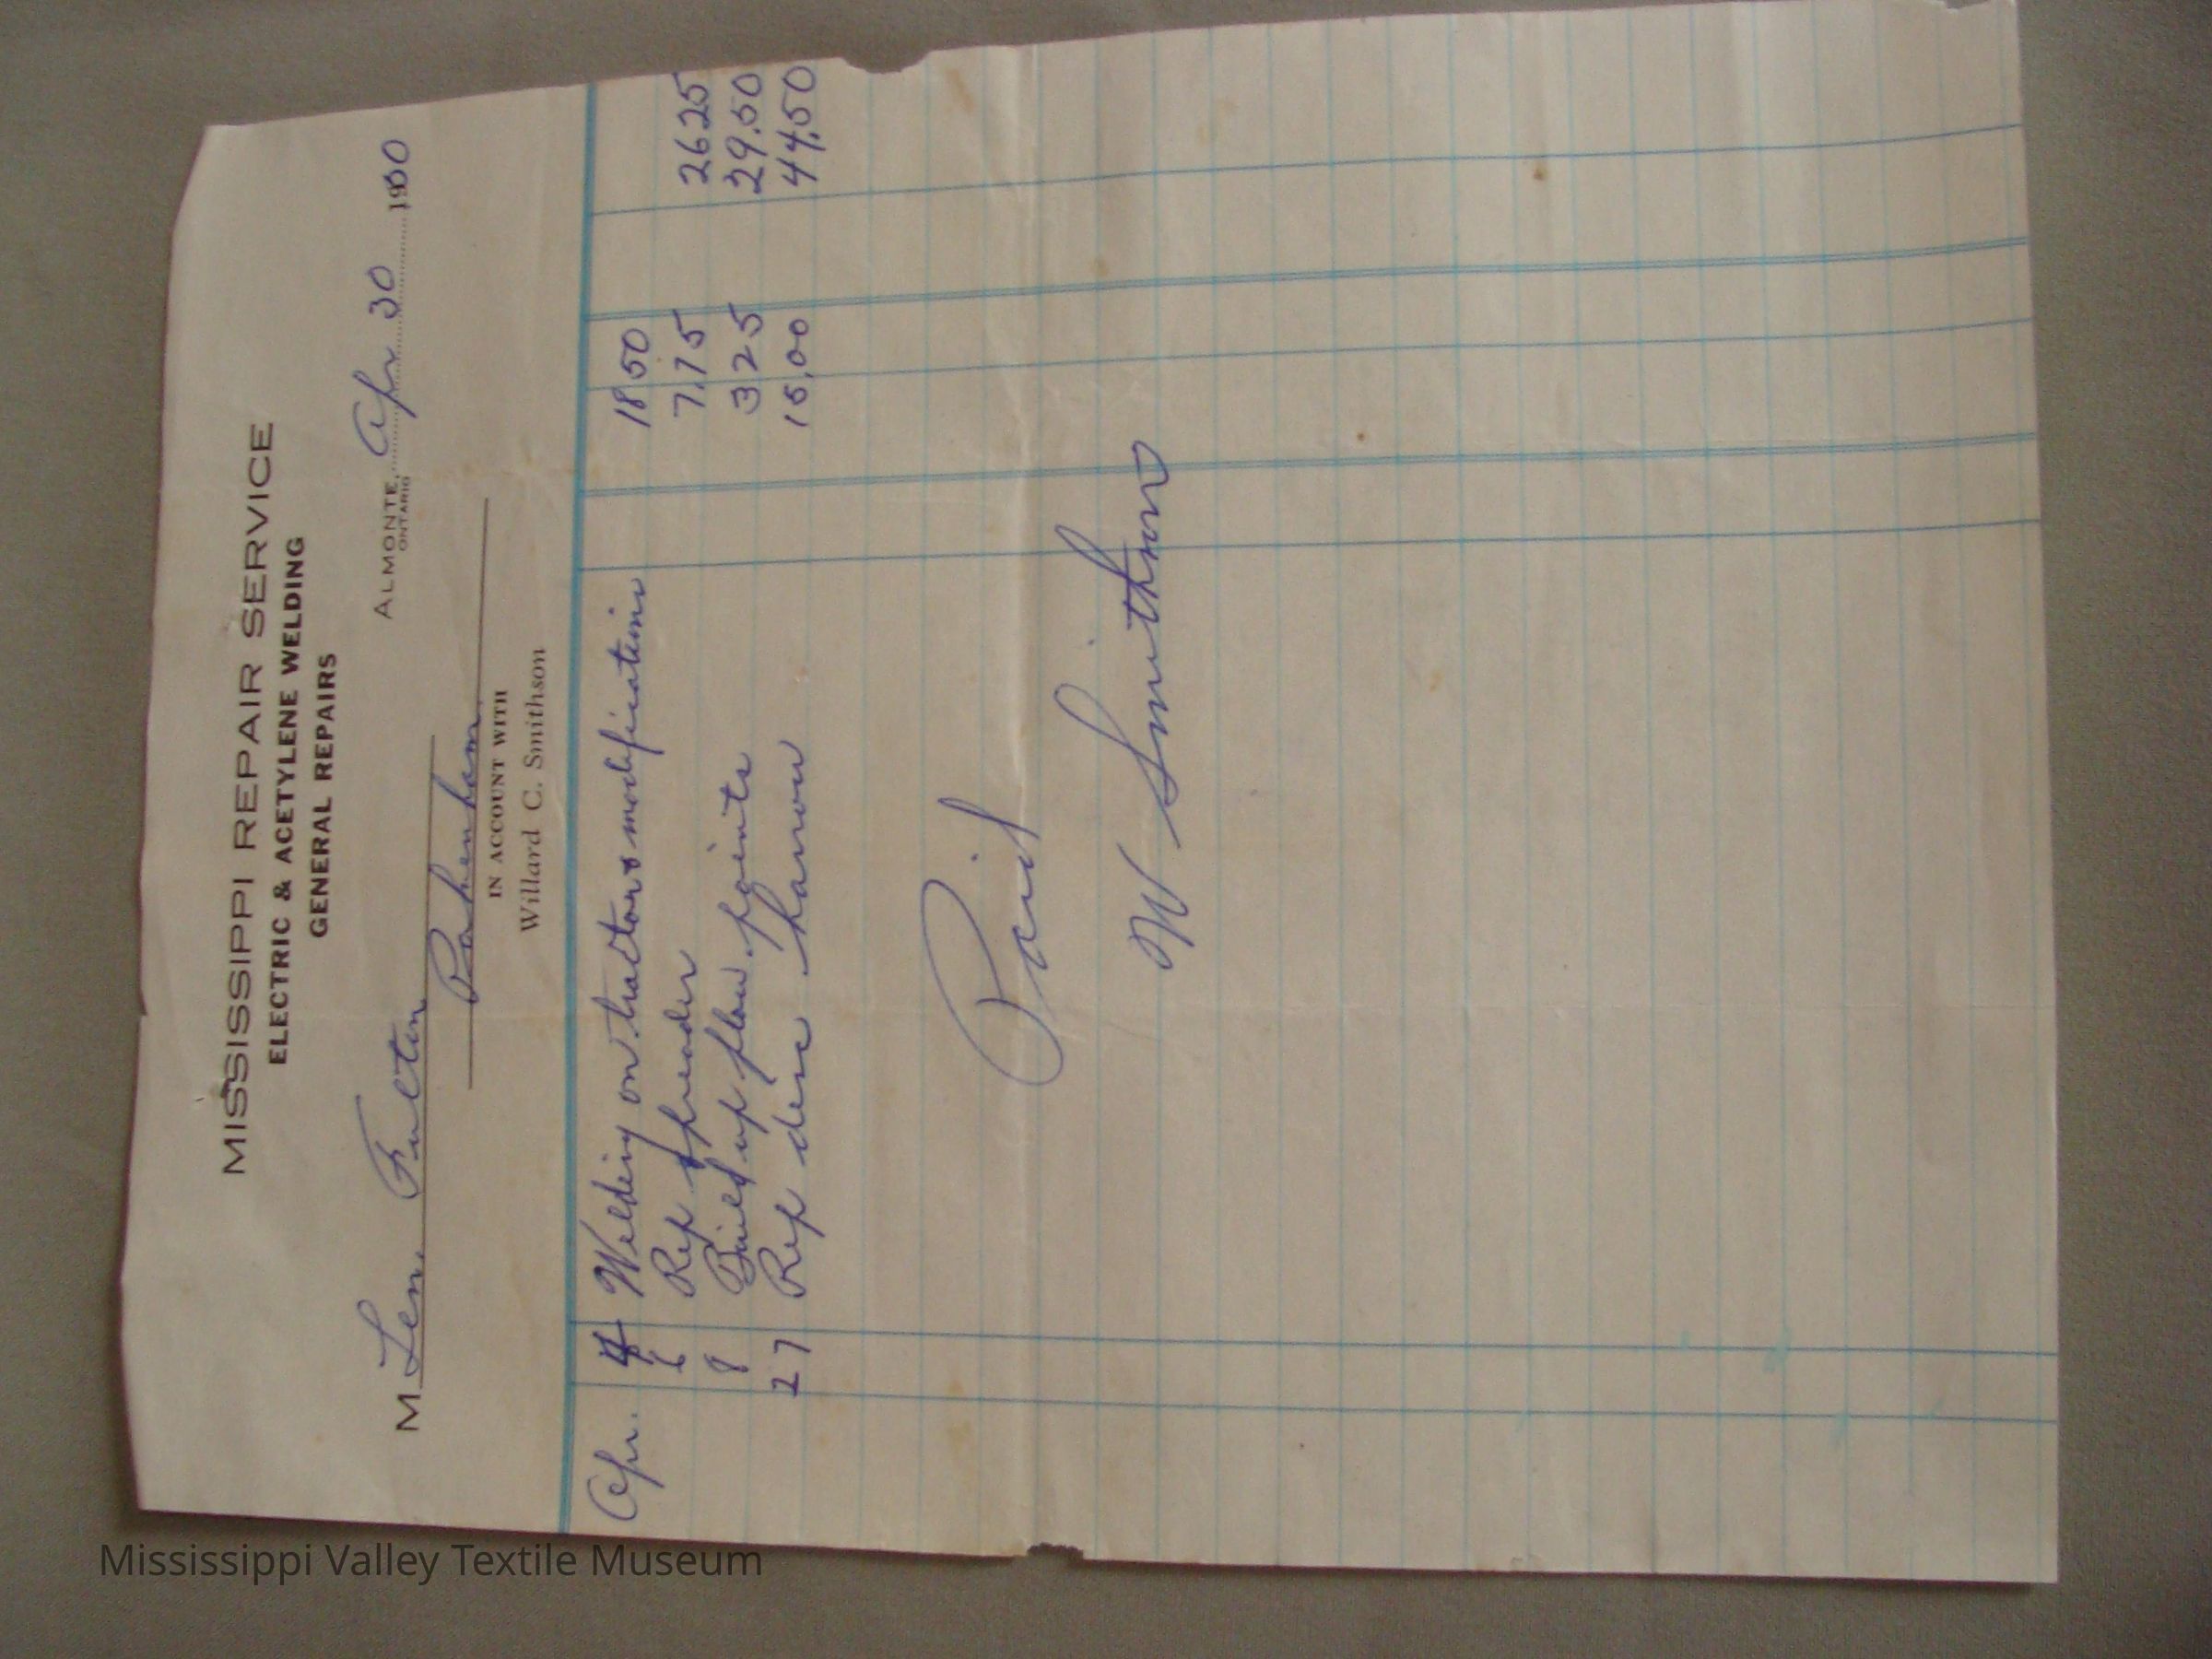 MISSISSIPPI REPAIR SERVICE
ELECTRIC & ACETYLENE WELDING
GENERAL REPAIRS
ALMONTE, ONTARIO Apr 30 1960
M Len. Fulton
Pakenham
IN ACCOUNT WITH
Willard C. Smithson
Apr. 4 Welding on tractor & modifications 18 50
6 Rep spreader 7.75 26 25
8 Build up plow points 3 25 29.50
27 Rep disc harrow 15,00 44,50
Paid
W Smithson
Mississippi Valley Textile Museum